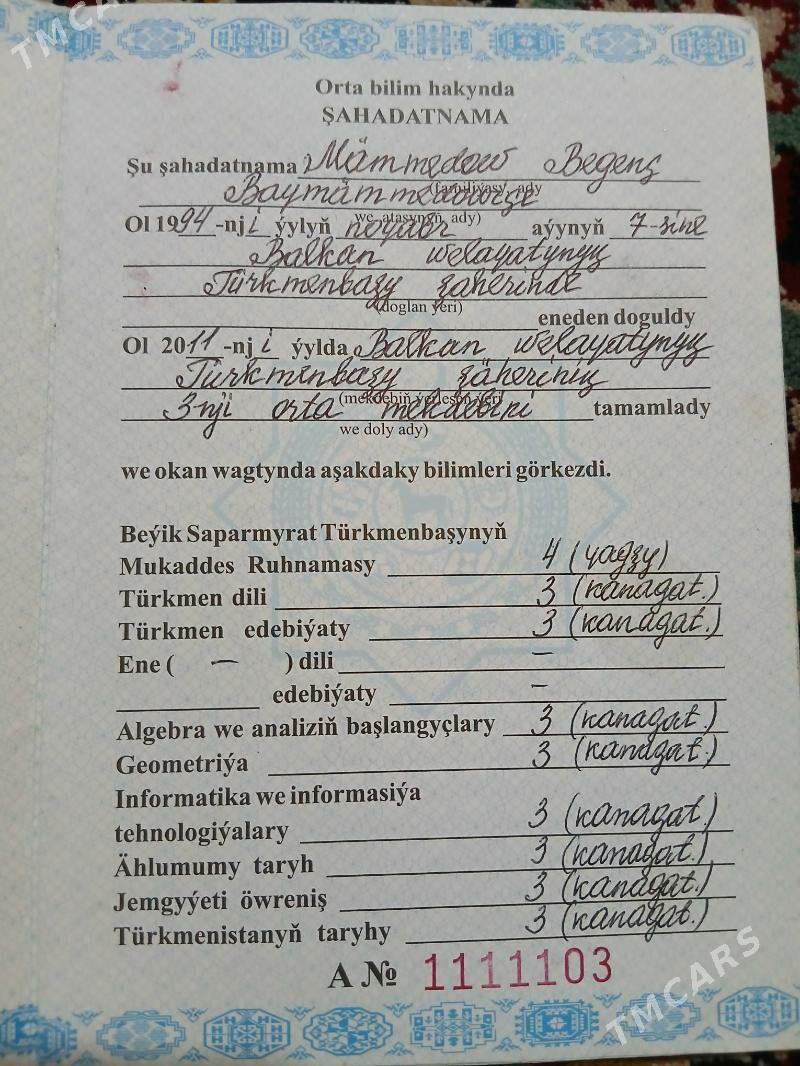 TMCARS
Orta bilim hakynda
ŞAHADATNAMA
Şu şahadatnama Mämmedow Begenç
(familiýasy, ady
Baymämmedowiçe
we atasynyň ady)
Ol 1994-nji ýylyň noýabr aýynyň 7-sine
Balkan welaýatynyň
Türkmenbaşy şäherinde
(doglan ýeri)
eneden doguldy
Ol 2011-nji ýylda Balkan welaýatynyň
Türkmenbaşy şäheriniň
(mekdebiň ýerleşýän ýeri
3-nji orta mekdebini tamamlady
we doly ady)
we okan wagtynda aşakdaky bilimleri görkezdi.
Beýik Saparmyrat Türkmenbaşynyň
Mukaddes Ruhnamasy 4 (ýagşy)
Türkmen dili 3 (kanagat.)
Türkmen edebiýaty 3 (kanagat.)
Ene ( — ) dili —
edebiýaty —
Algebra we analiziň başlangyçlary 3 (kanagat.)
Geometriýa 3 (kanagat.)
Informatika we informasiýa
tehnologiýalary 3 (kanagat.)
Ählumumy taryh 3 (kanagat.)
Jemgyýeti öwreniş 3 (kanagat.)
Türkmenistanyň taryhy 3 (kanagat.)
A № 1111103
TMCARS